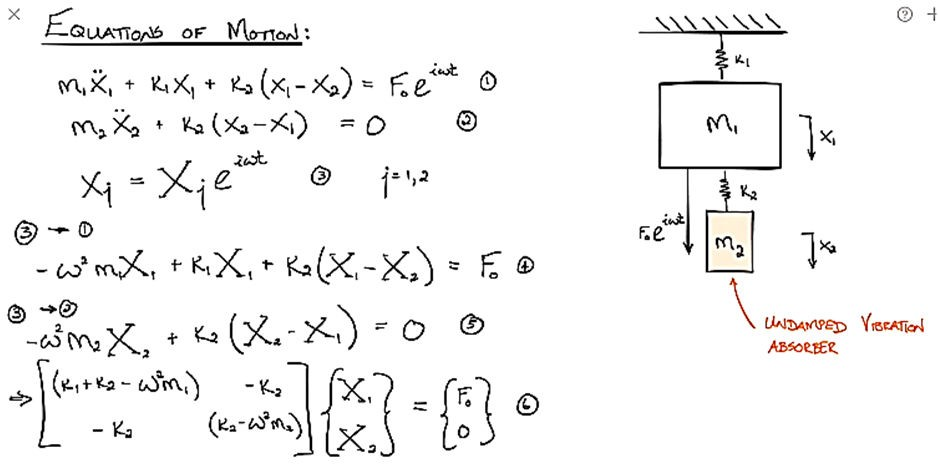 ×
EQUATIONS OF MOTION:
m₁ẍ₁ + k₁x₁ + k₂(x₁-x₂) = F₀e^{iωt} ①
m₂ẍ₂ + k₂(x₂-x₁) = 0 ②
xⱼ = Xⱼe^{iωt} ③ j=1,2
③ → ①
-ω²m₁X₁ + k₁X₁ + k₂(X₁-X₂) = F₀ ④
③ → ②
-ω²m₂X₂ + k₂(X₂-X₁) = 0 ⑤
⇒ [(k₁+k₂-ω²m₁) -k₂
-k₂ (k₂-ω²m₂)] {X₁
X₂} = {F₀
0} ⑥
? +
k₁
m₁
x₁
k₂
F₀e^{iωt}
m₂
x₂
UNDAMPED VIBRATION
ABSORBER